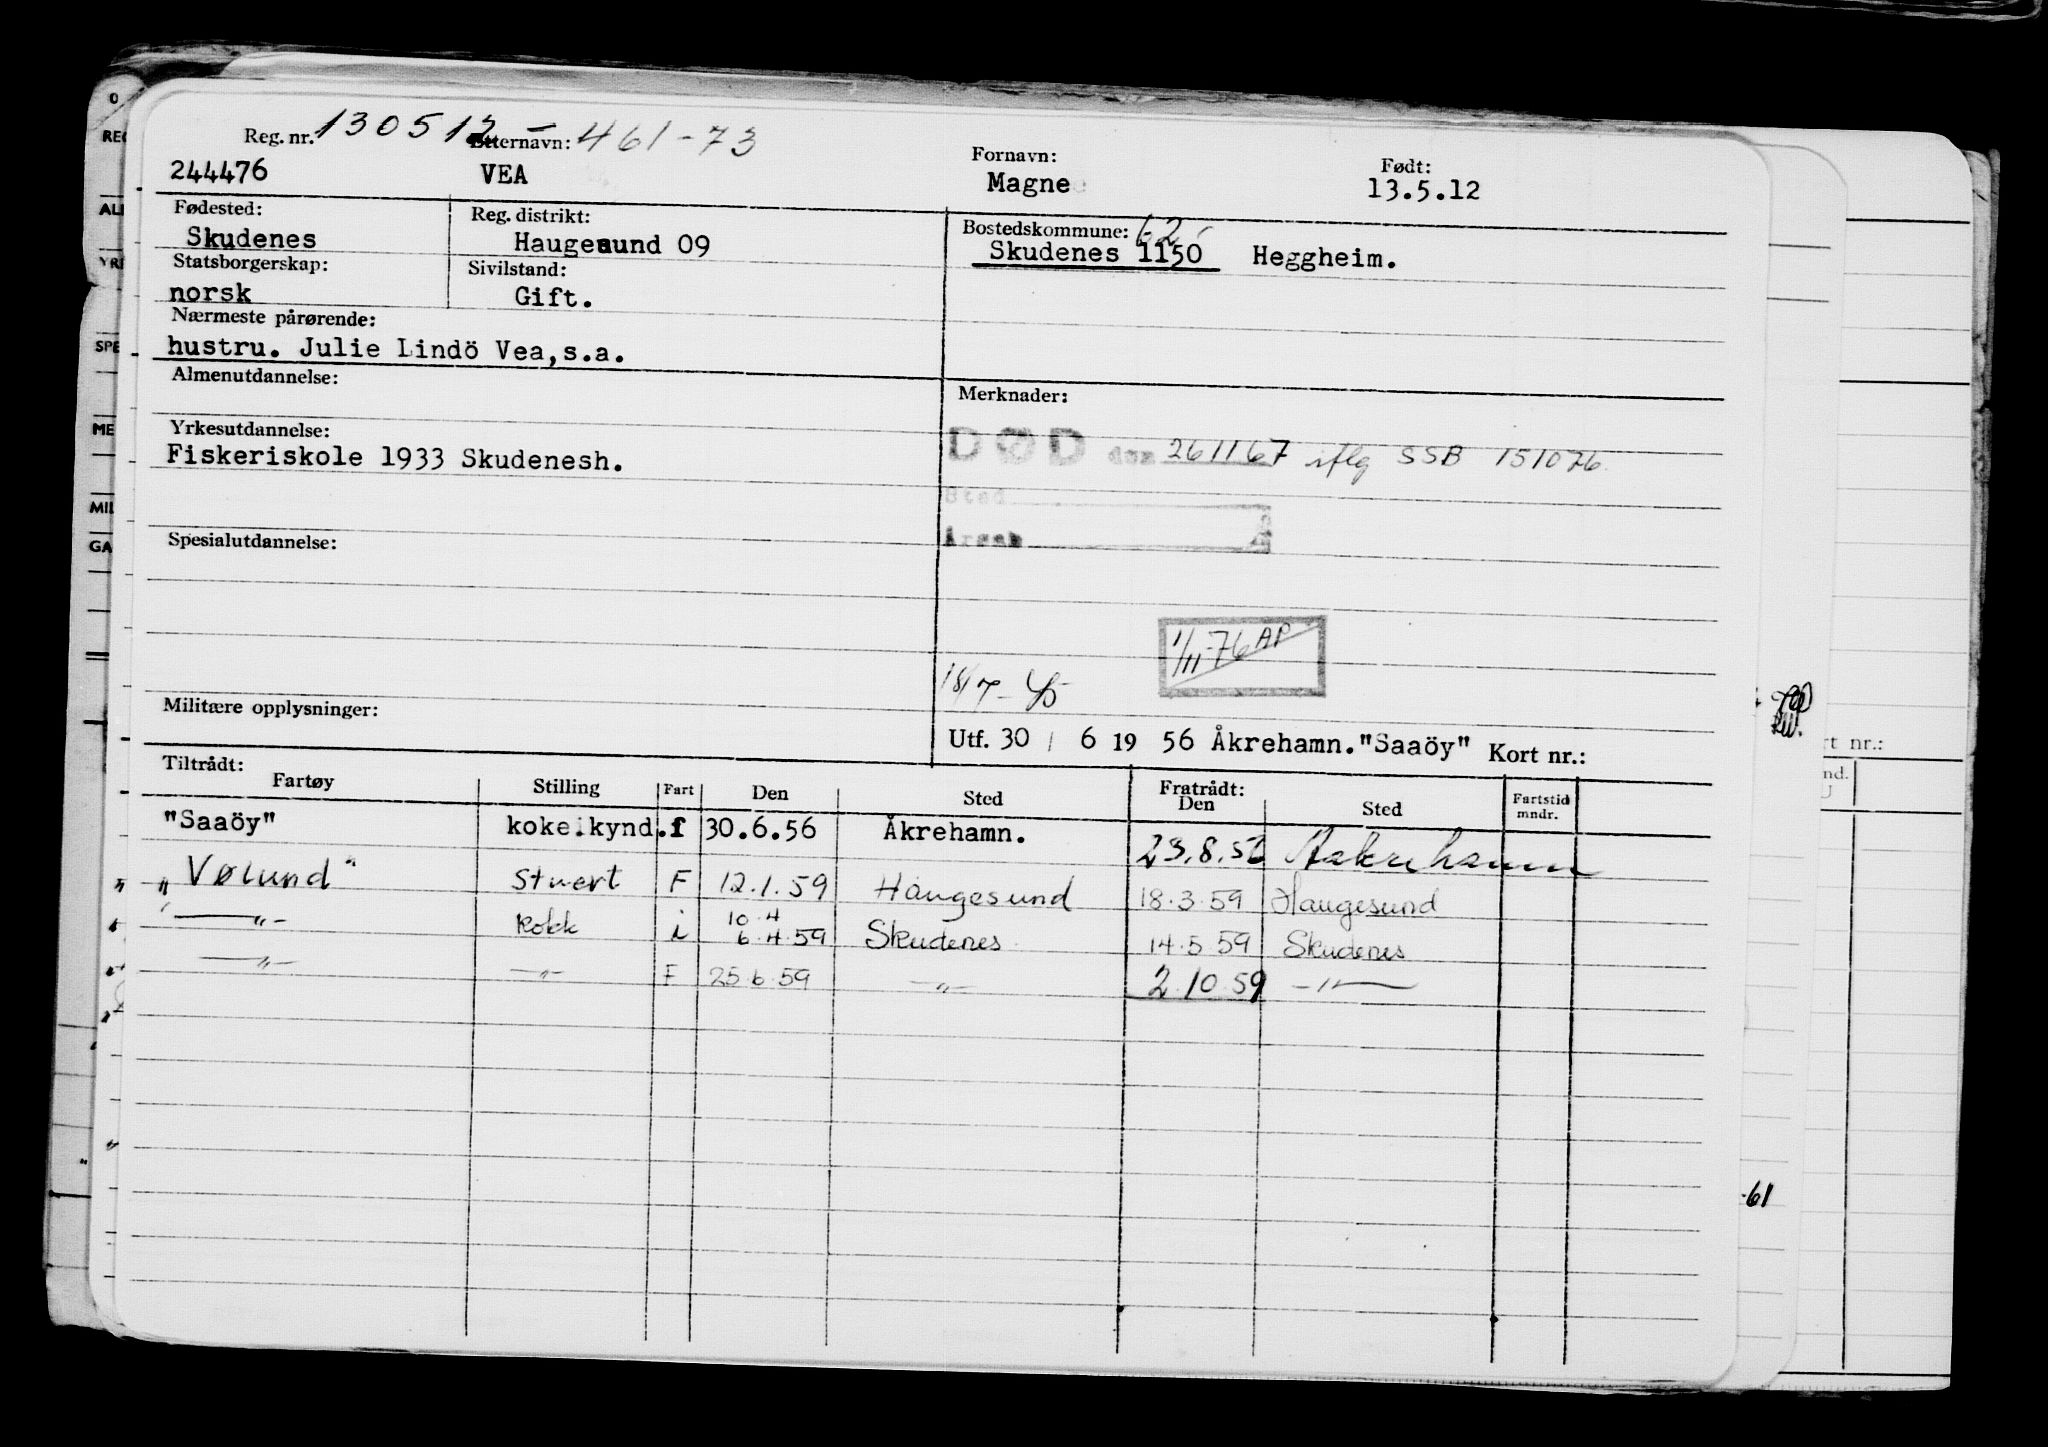 Reg. nr. 130512 - Etternavn: 461-73 Fornavn: Født:
244476 VEA Magne 13.5.12
Fødested: Reg. distrikt: Bostedskommune: 62
Skudenes Haugesund 09 Skudenes 1150 Heggheim.
Statsborgerskap: Sivilstand:
norsk Gift.
Nærmeste pårørende:
hustru. Julie Lindö Vea,s.a.
Almenutdannelse: Merknader:
Yrkesutdannelse: DØD den 261167 iflg SSB 151076
Fiskeriskole 1933 Skudenesh.
Sted
Årsak
Spesialutdannelse:
1/11-76 AP
18/7-
Militære opplysninger:
Utf. 30 / 6 19 56 Åkrehamn."Saaöy" Kort nr.:
Tiltrådt: Fratrådt:
Fartøy Stilling Fart Den Sted Den Sted Fartstid mndr.
"Saaöy" koke.kynd.f 30.6.56 Åkrehamn. 23.8.56 Aakrehamn
"Vølund" Stuert F 12.1.59 Haugesund 18.3.59 Haugesund
—"— kokk i 10.4 6.4.59 Skudenes 14.5.59 Skudenes
—"— —"— F 25.6.59 —"— 2.10.59 —"—
rt nr.:
nd.
-61
REG
ALI
YRI
SPE
ME
MIL
GA